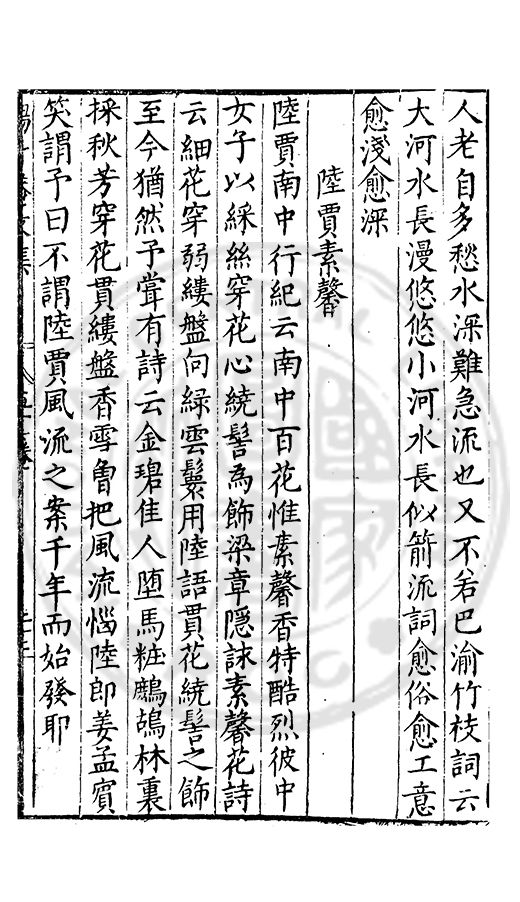 人老自多愁水深難急流也又不若巴渝竹枝詞云
大河水長漫悠悠小河水長似箭流詞愈俗愈工意
愈淺愈深
陸賈素馨
陸賈南中行紀云南中百花惟素馨香特酷烈彼中
女子以綵絲穿花心繞髻為飾梁章隱詠素馨花詩
云細花穿弱縷盤向綠雲鬟用陸語貫花繞髻之飾
至今猶然予嘗有詩云金碧佳人墮馬粧鷓鴣林裏
採秋芳穿花貫縷盤香雪曾把風流惱陸郎姜孟賓
笑謂予曰不謂陸賈風流之案千年而始發耶